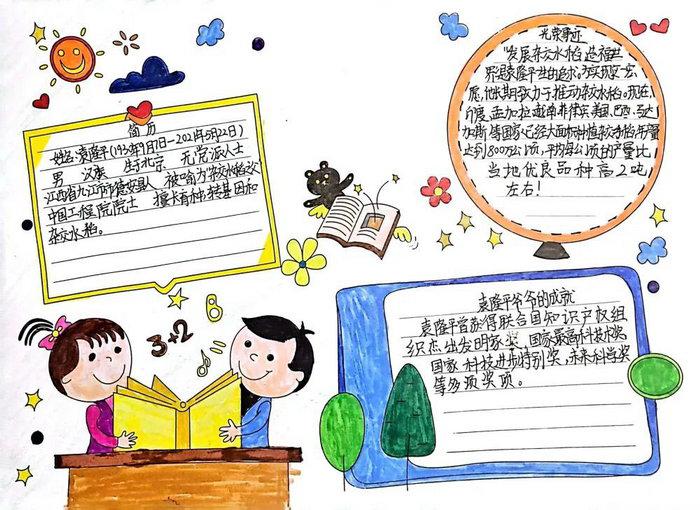 简历
姓名:袁隆平(1930年9月7日-2021年5月22日)
男 汉族 生于北京 无党派人士
江西省九江市德安县人 被喻为杂交水稻之父
中国工程院院士 擅长育种、转基因和
杂交水稻。
光荣事迹
"发展杂交水稻,造福世
界"是袁隆平毕生的追求。为实现这一宏
愿,他长期致力于推动杂交水稻。现在,
印度、孟加拉、越南、菲律宾、美国、巴西、马达
加斯等国家已经大面积种植杂交水稻,年种量
达到800万公顷,平均每公顷的产量比
当地优良品种高2吨
左右!
3+2
8
袁隆平爷爷的成就
袁隆平曾获得联合国知识产权组
织杰出发明家奖、国际最高科技大奖、
国家科技进步特别奖,未来科学奖
等多项奖项。